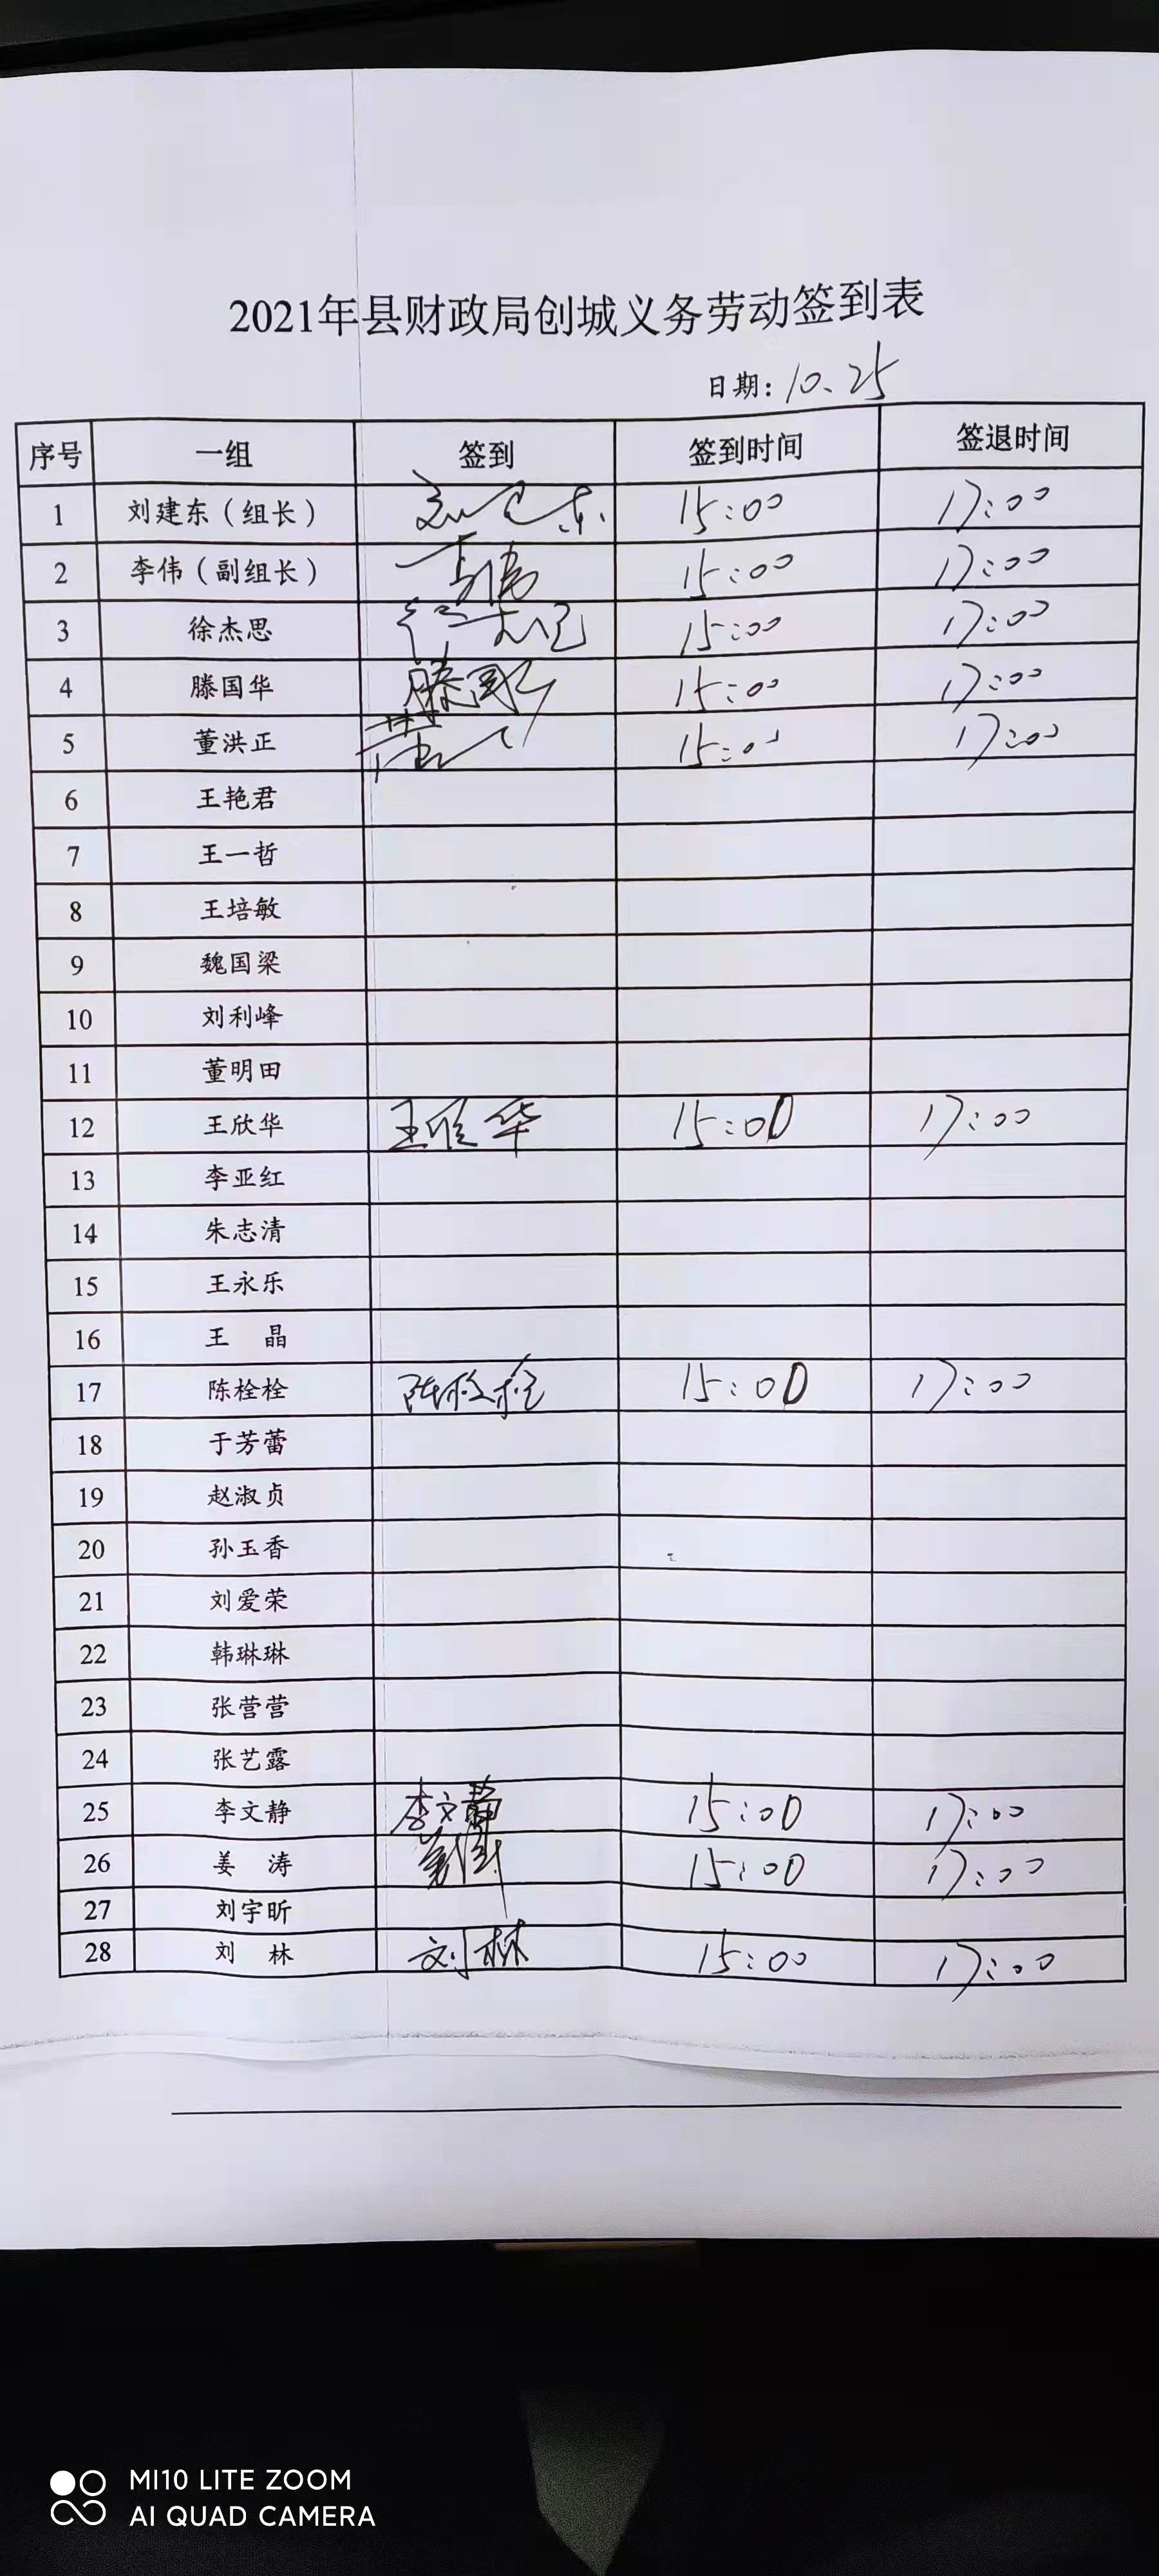 2021年县财政局创城义务劳动签到表
日期：10.25
序号 一组 签到 签到时间 签退时间
1 刘建东（组长） 刘建东 15:00 17:00
2 李伟（副组长） 李伟 15:00 17:00
3 徐杰思 徐杰思 15:00 17:00
4 滕国华 滕国华 15:00 17:00
5 董洪正 15:00 17:00
6 王艳君
7 王一哲
8 王培敏
9 魏国梁
10 刘利峰
11 董明田
12 王欣华 王欣华 15:00 17:00
13 李亚红
14 朱志清
15 王永乐
16 王 晶
17 陈栓栓 陈栓栓 15:00 17:00
18 于芳蕾
19 赵淑贞
20 孙玉香
21 刘爱荣
22 韩琳琳
23 张营营
24 张艺露
25 李文静 李文静 15:00 17:00
26 姜 涛 姜涛 15:00 17:00
27 刘宇昕
28 刘 林 刘林 15:00 17:00
MI10 LITE ZOOM
AI QUAD CAMERA